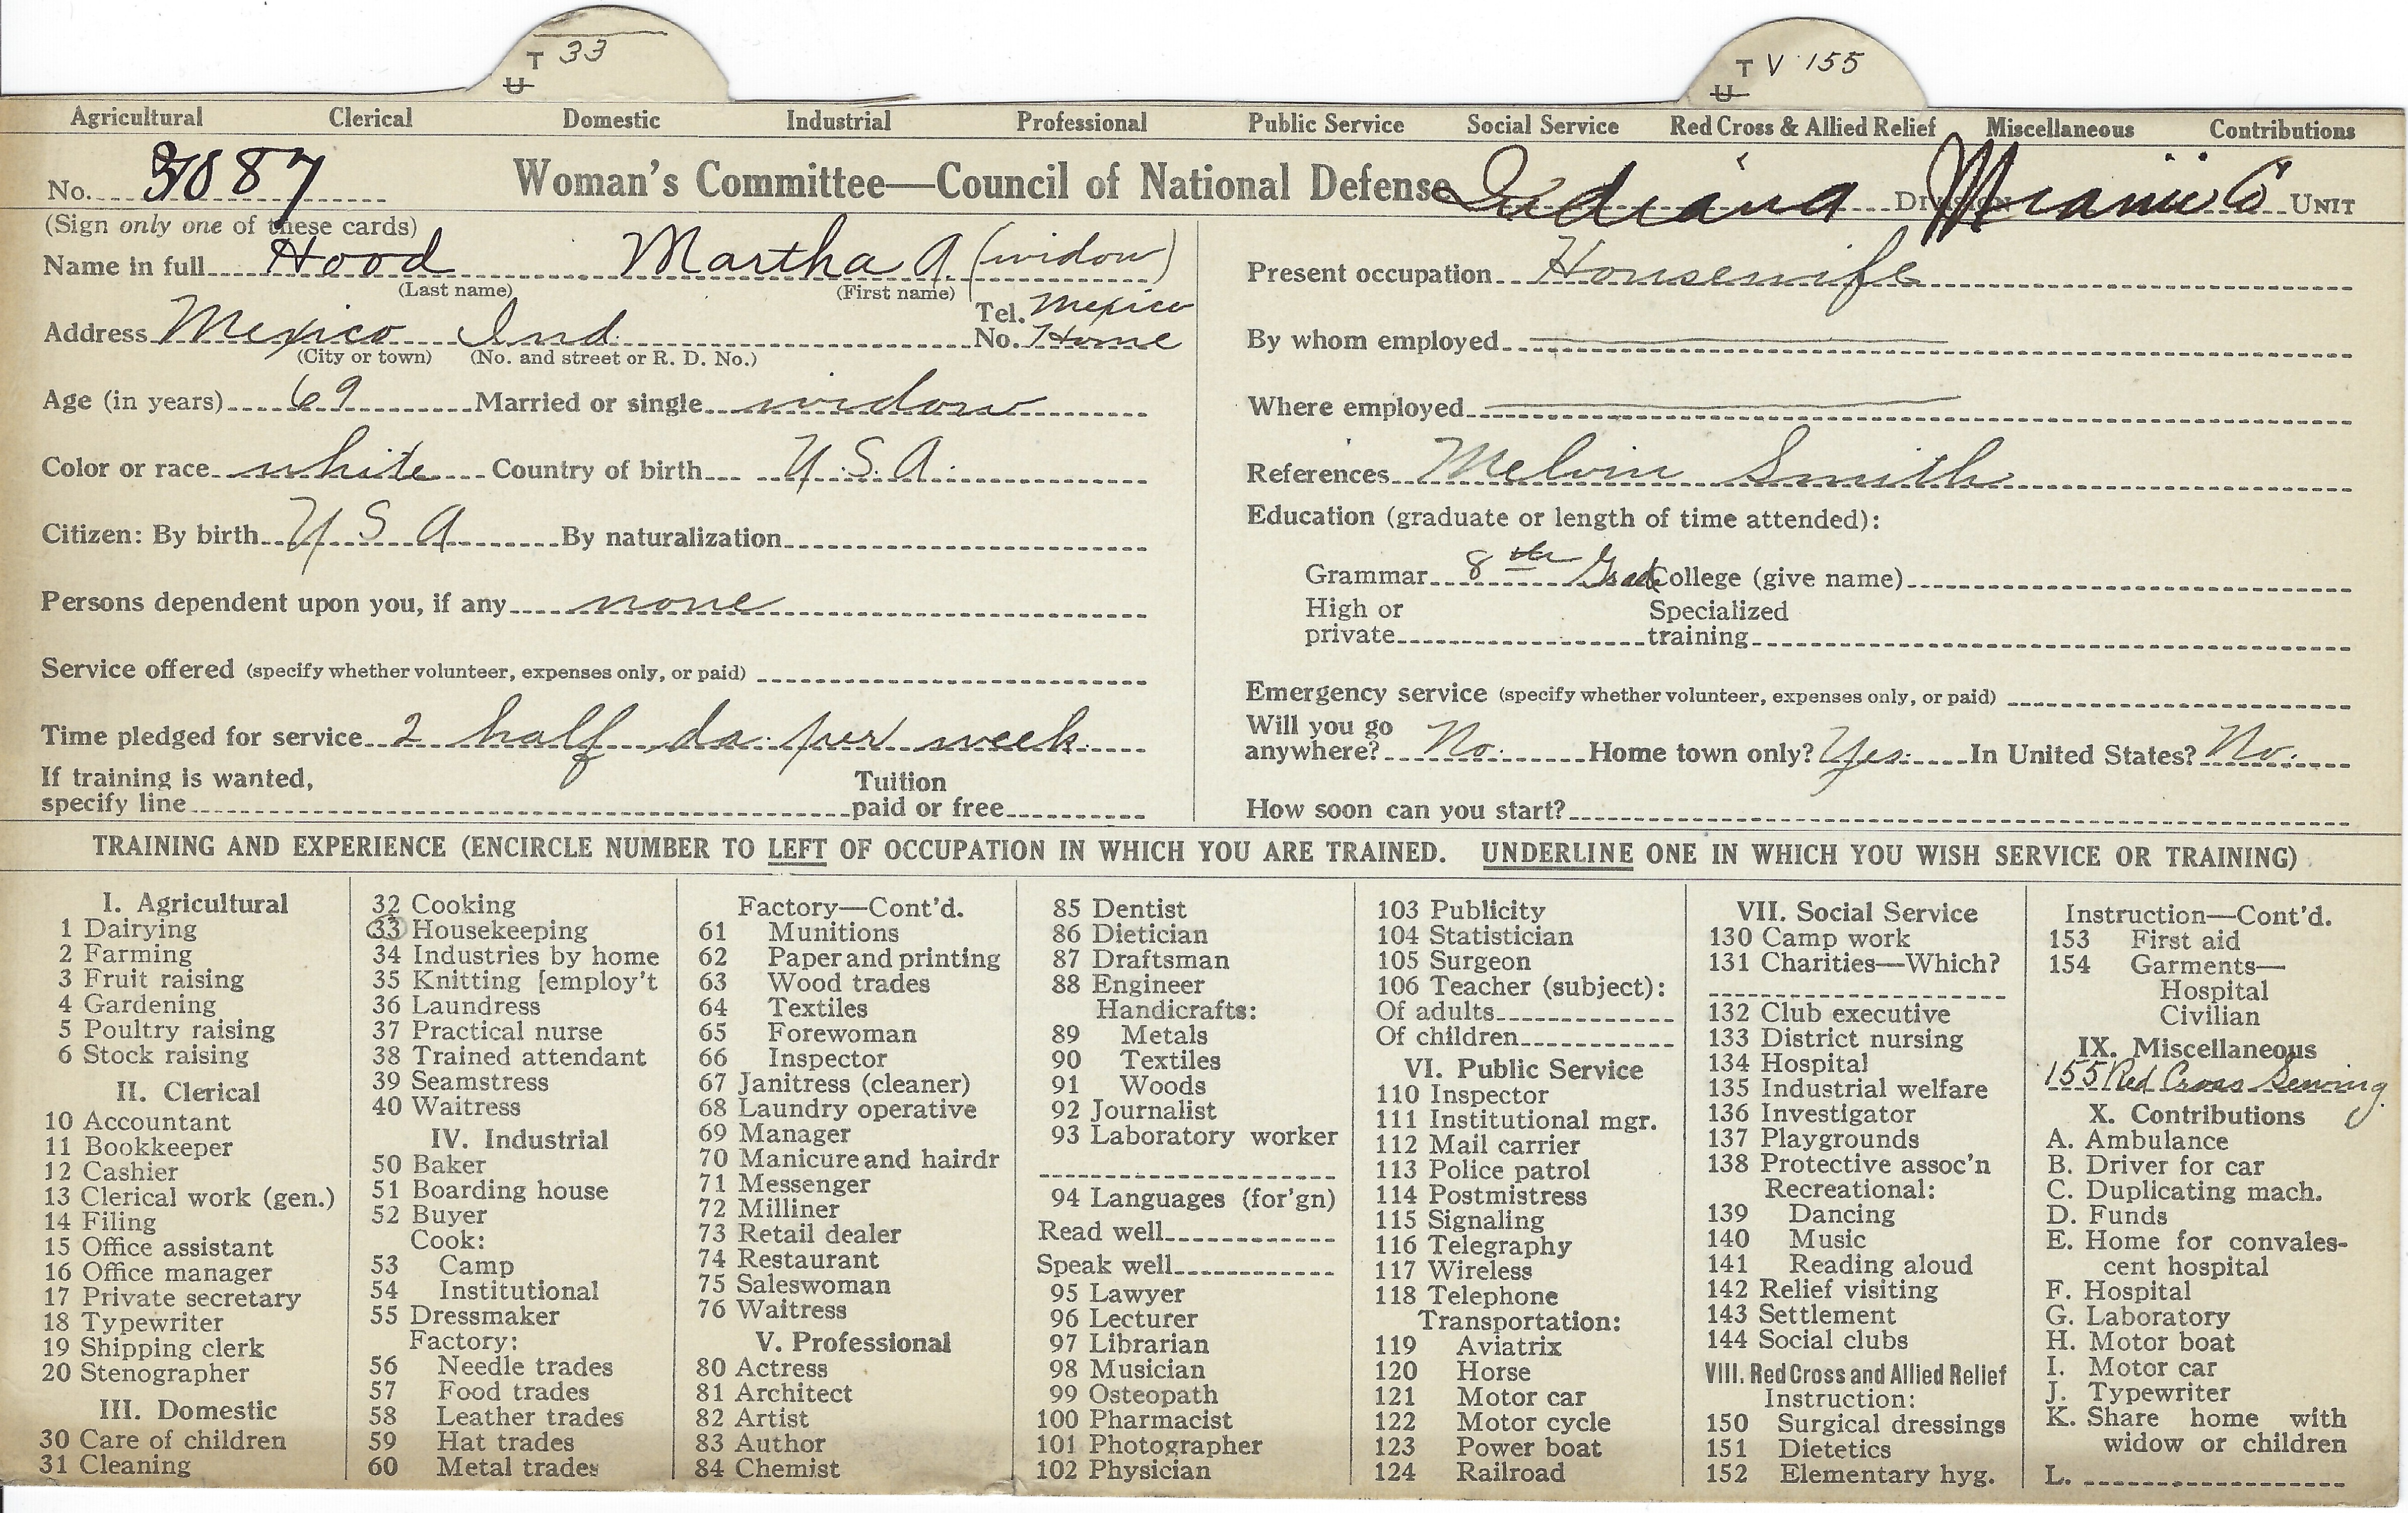 T 33
U
T V 155
U
Agricultural Clerical Domestic Industrial Professional Public Service Social Service Red Cross & Allied Relief Miscellaneous Contributions
No. 3087 Woman's Committee—Council of National Defense Indiana Division Miami Co UNIT
(Sign only one of these cards)
Name in full Hood Martha A (widow)
(Last name) (First name)
Address Mexico Ind. Tel. No. Mexico Home
(City or town) (No. and street or R. D. No.)
Age (in years) 69 Married or single widow
Color or race white Country of birth U.S.A.
Citizen: By birth U S A By naturalization
Persons dependent upon you, if any none
Service offered (specify whether volunteer, expenses only, or paid)
Time pledged for service 2 half da. per week.
If training is wanted,
specify line
Tuition
paid or free
Present occupation Housewife
By whom employed
Where employed
References Melvin Smith
Education (graduate or length of time attended):
Grammar 8th Grad College (give name)
High or
private
Specialized
training
Emergency service (specify whether volunteer, expenses only, or paid)
Will you go
anywhere? No. Home town only? Yes. In United States? No.
How soon can you start?
TRAINING AND EXPERIENCE (ENCIRCLE NUMBER TO LEFT OF OCCUPATION IN WHICH YOU ARE TRAINED. UNDERLINE ONE IN WHICH YOU WISH SERVICE OR TRAINING)
I. Agricultural
1 Dairying
2 Farming
3 Fruit raising
4 Gardening
5 Poultry raising
6 Stock raising
II. Clerical
10 Accountant
11 Bookkeeper
12 Cashier
13 Clerical work (gen.)
14 Filing
15 Office assistant
16 Office manager
17 Private secretary
18 Typewriter
19 Shipping clerk
20 Stenographer
III. Domestic
30 Care of children
31 Cleaning
32 Cooking
33 Housekeeping
34 Industries by home
35 Knitting [employ't
36 Laundress
37 Practical nurse
38 Trained attendant
39 Seamstress
40 Waitress
IV. Industrial
50 Baker
51 Boarding house
52 Buyer
Cook:
53 Camp
54 Institutional
55 Dressmaker
Factory:
56 Needle trades
57 Food trades
58 Leather trades
59 Hat trades
60 Metal trades
Factory—Cont'd.
61 Munitions
62 Paper and printing
63 Wood trades
64 Textiles
65 Forewoman
66 Inspector
67 Janitress (cleaner)
68 Laundry operative
69 Manager
70 Manicure and hairdr
71 Messenger
72 Milliner
73 Retail dealer
74 Restaurant
75 Saleswoman
76 Waitress
V. Professional
80 Actress
81 Architect
82 Artist
83 Author
84 Chemist
85 Dentist
86 Dietician
87 Draftsman
88 Engineer
Handicrafts:
89 Metals
90 Textiles
91 Woods
92 Journalist
93 Laboratory worker
94 Languages (for'gn)
Read well
Speak well
95 Lawyer
96 Lecturer
97 Librarian
98 Musician
99 Osteopath
100 Pharmacist
101 Photographer
102 Physician
103 Publicity
104 Statistician
105 Surgeon
106 Teacher (subject):
Of adults
Of children
VI. Public Service
110 Inspector
111 Institutional mgr.
112 Mail carrier
113 Police patrol
114 Postmistress
115 Signaling
116 Telegraphy
117 Wireless
118 Telephone
Transportation:
119 Aviatrix
120 Horse
121 Motor car
122 Motor cycle
123 Power boat
124 Railroad
VII. Social Service
130 Camp work
131 Charities—Which?
132 Club executive
133 District nursing
134 Hospital
135 Industrial welfare
136 Investigator
137 Playgrounds
138 Protective assoc'n
Recreational:
139 Dancing
140 Music
141 Reading aloud
142 Relief visiting
143 Settlement
144 Social clubs
VIII. Red Cross and Allied Relief
Instruction:
150 Surgical dressings
151 Dietetics
152 Elementary hyg.
Instruction—Cont'd.
153 First aid
154 Garments—
Hospital
Civilian
IX. Miscellaneous
155 Red Cross Sewing
X. Contributions
A. Ambulance
B. Driver for car
C. Duplicating mach.
D. Funds
E. Home for convales-
cent hospital
F. Hospital
G. Laboratory
H. Motor boat
I. Motor car
J. Typewriter
K. Share home with
widow or children
L.